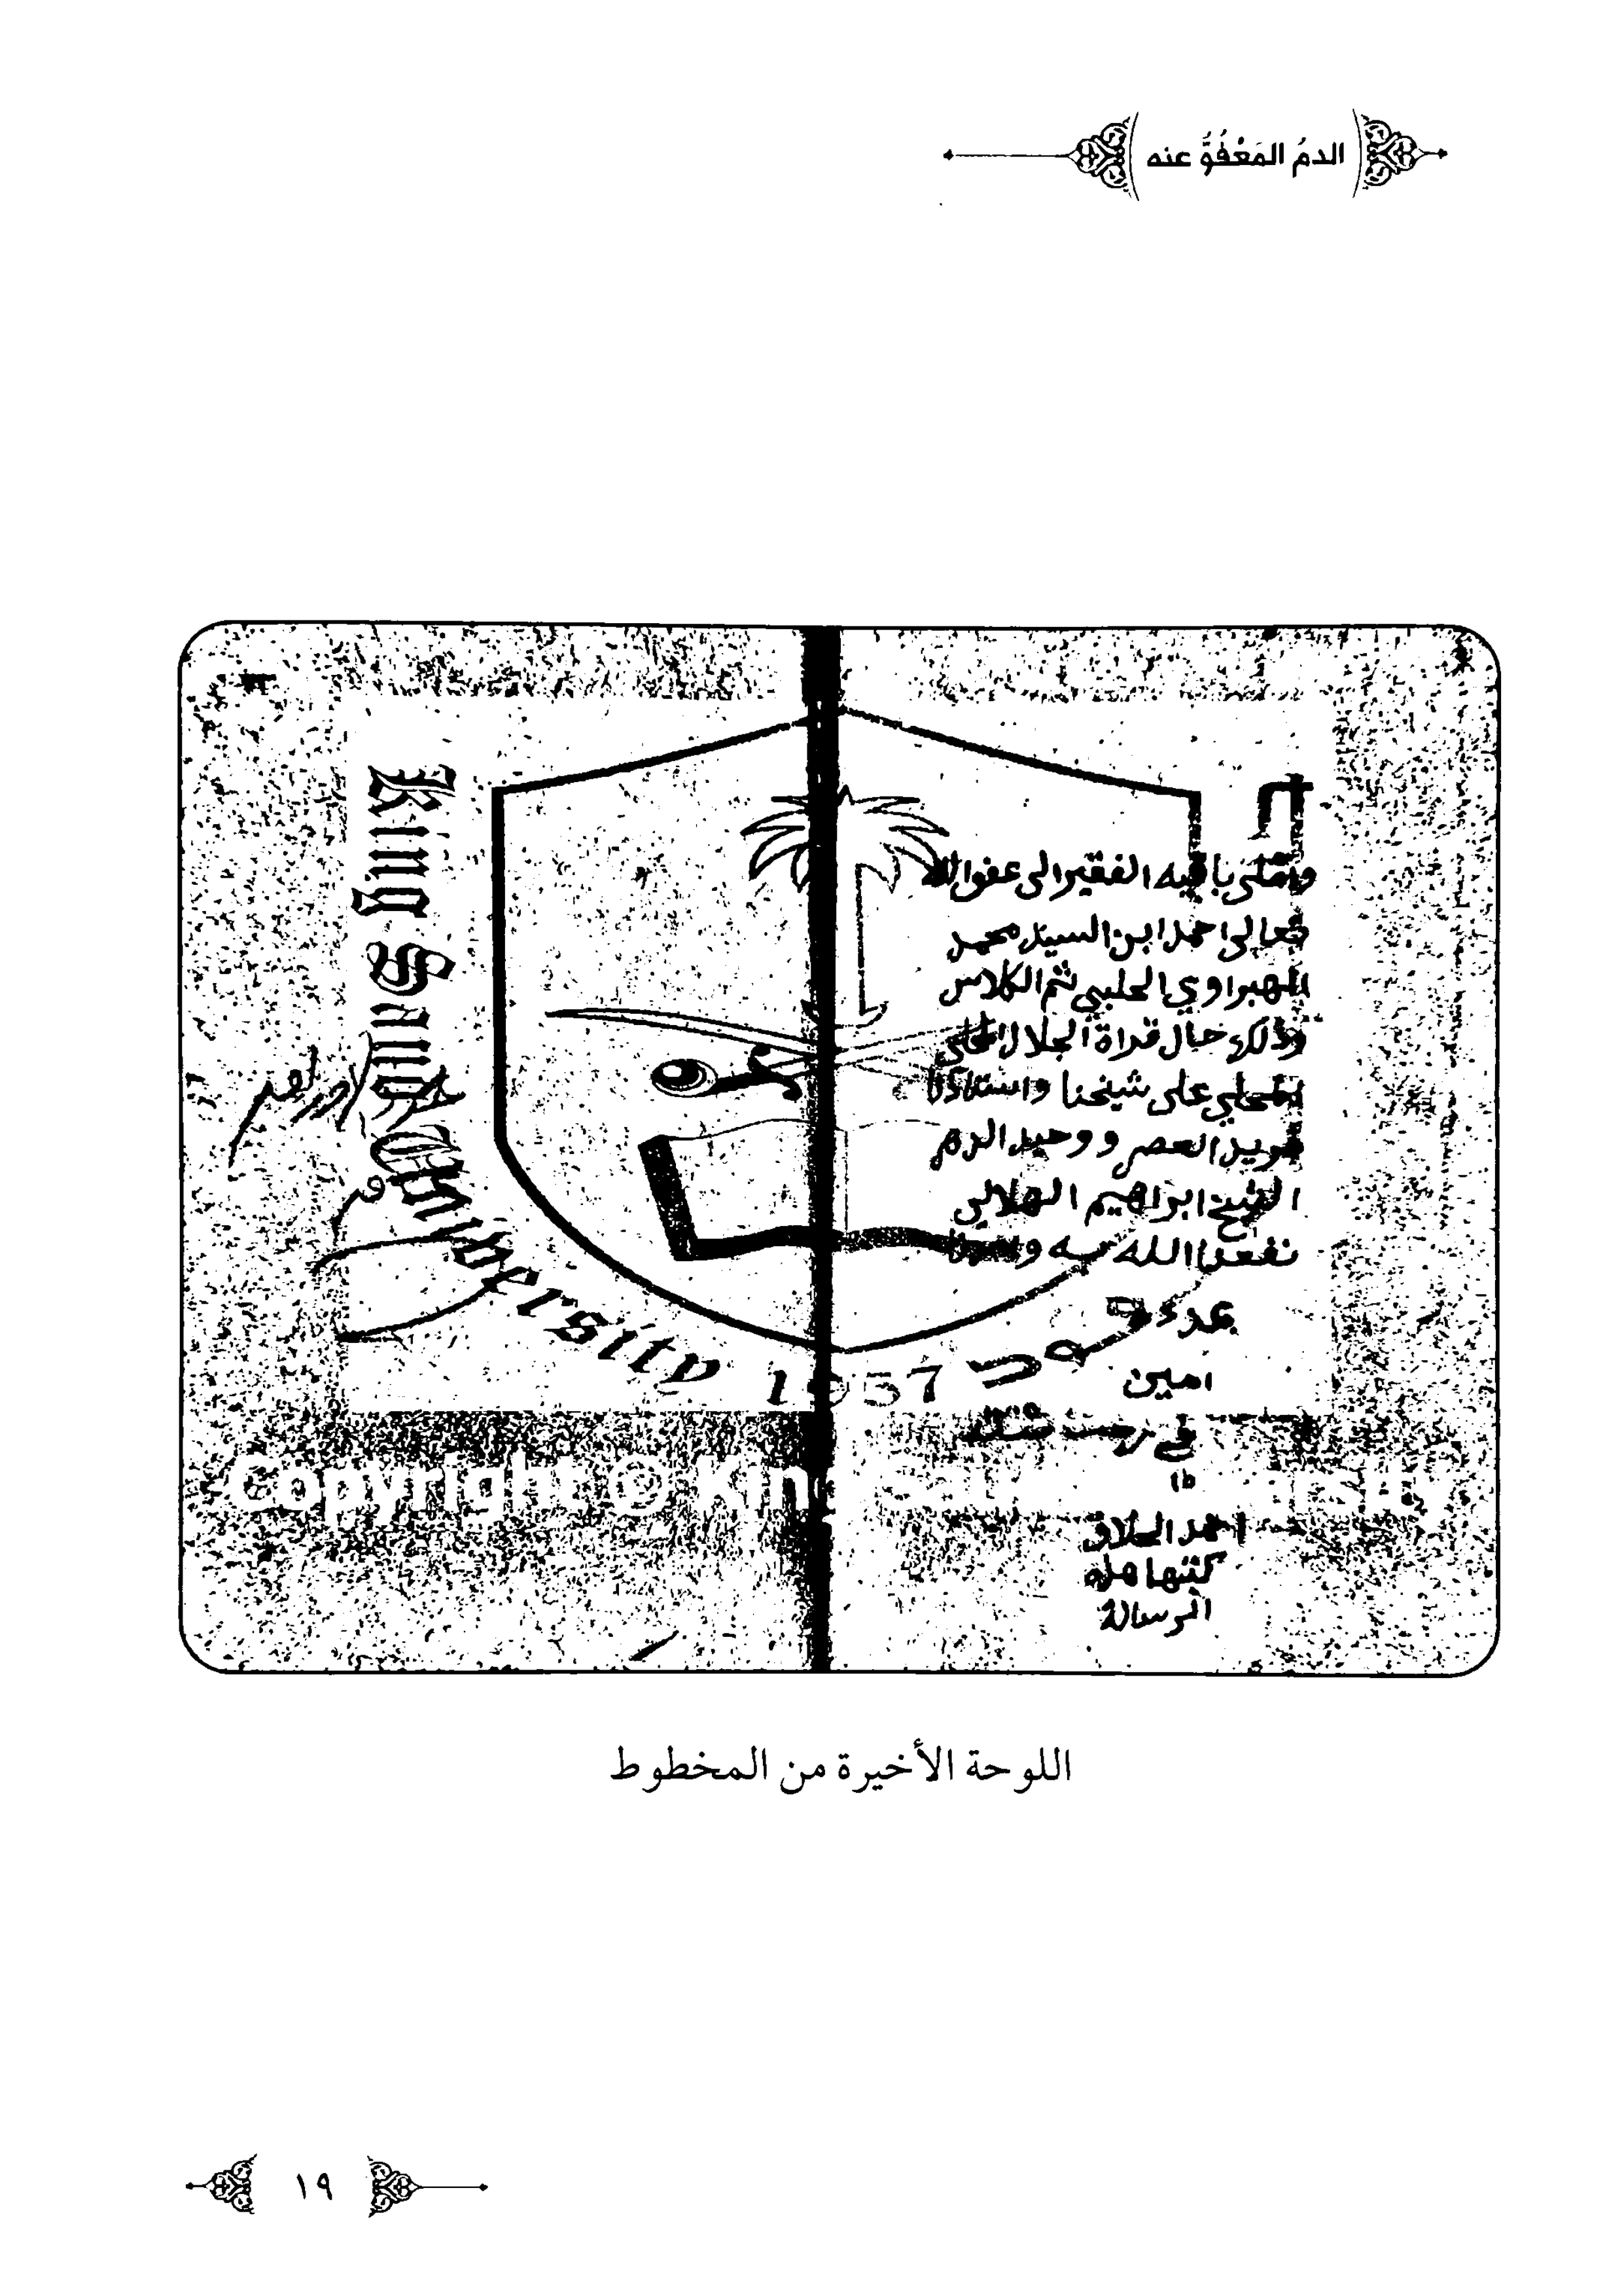 الدمُ المَعْفُوُّ عنه
الفقير الى عفو الله
تعالى احمد ابن السيد محمد
الهبراوي الحلبي ثم الكلاس
وذلك حال قراة الجلال المحلى
على شيخنا واستاذنا
فريد العصر ووحيد الدهر
الشيخ ابراهيم الهلالي
نفعنا الله به
امين
في
احمد الحلاق
كتبها هذه
الرسالة
King Saud University 1957
اللوحة الأخيرة من المخطوط
١٩